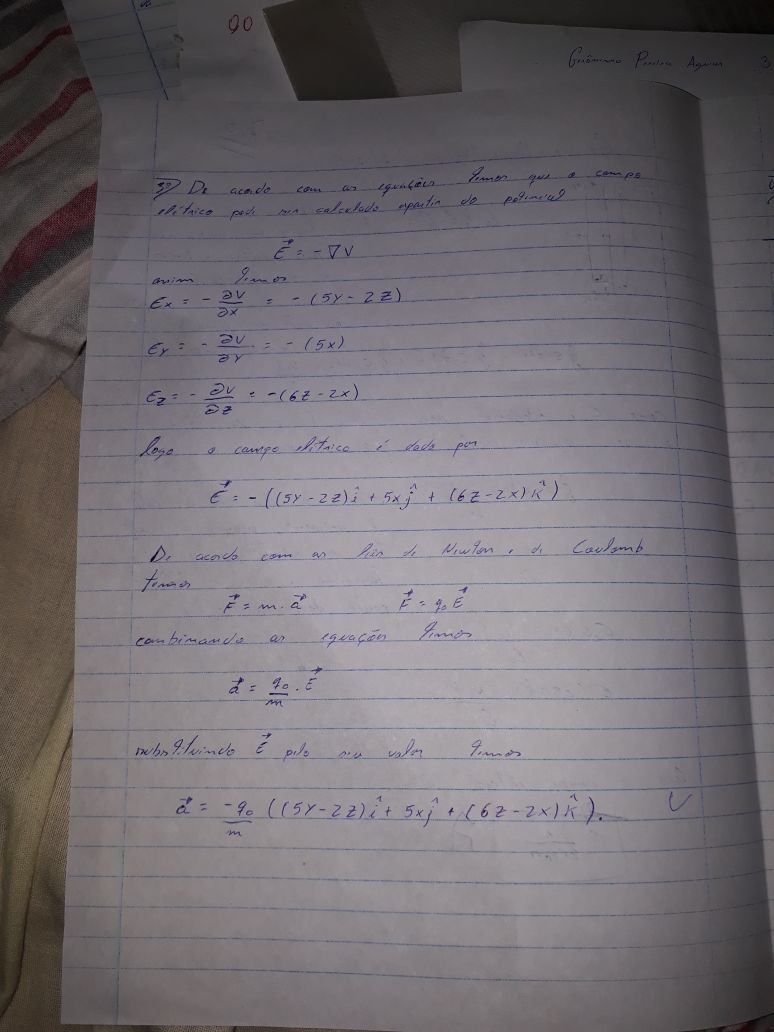 90
Gerônimo Pereira Aguiar 3
3º) De acordo com as equações temos que o campo
elétrico pode ser calculado apartir do potencial
E⃗ = - ∇V
assim temos
Ex = - ∂V/∂x = - (5Y - 2Z)
EY = - ∂V/∂Y = - (5x)
EZ = - ∂V/∂Z = - (6Z - 2x)
logo o campo elétrico é dado por
E⃗ = - ((5Y - 2Z) î + 5x ĵ + (6Z - 2x) k̂)
De acordo com as leis de Newton e de Coulomb
temos
F⃗ = m . a⃗ F⃗ = q₀ E⃗
combinando as equações temos
a⃗ = q₀/m . E⃗
substituindo E⃗ pelo seu valor temos
a⃗ = -q₀/m ((5Y - 2Z) î + 5x ĵ + (6Z - 2x) k̂).